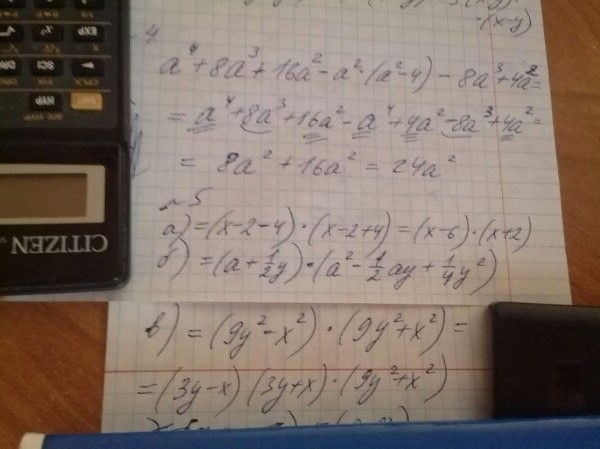 -(x-y)
4
a⁴+8a³+16a²-a²·(a²-4)-8a³+4a²=
=a⁴+8a³+16a²-a⁴+4a²-8a³+4a²=
= 8a²+16a² = 24a²
~5
а) =(x-2-4)·(x-2+4)=(x-6)·(x+2)
б) =(a+1/2y)·(a²-1/2ay+1/4y²)
в) =(9y²-x²)·(9y²+x²)=
=(3y-x)(3y+x)·(9y²+x²)
EXP
SCI
HYP
CITIZEN